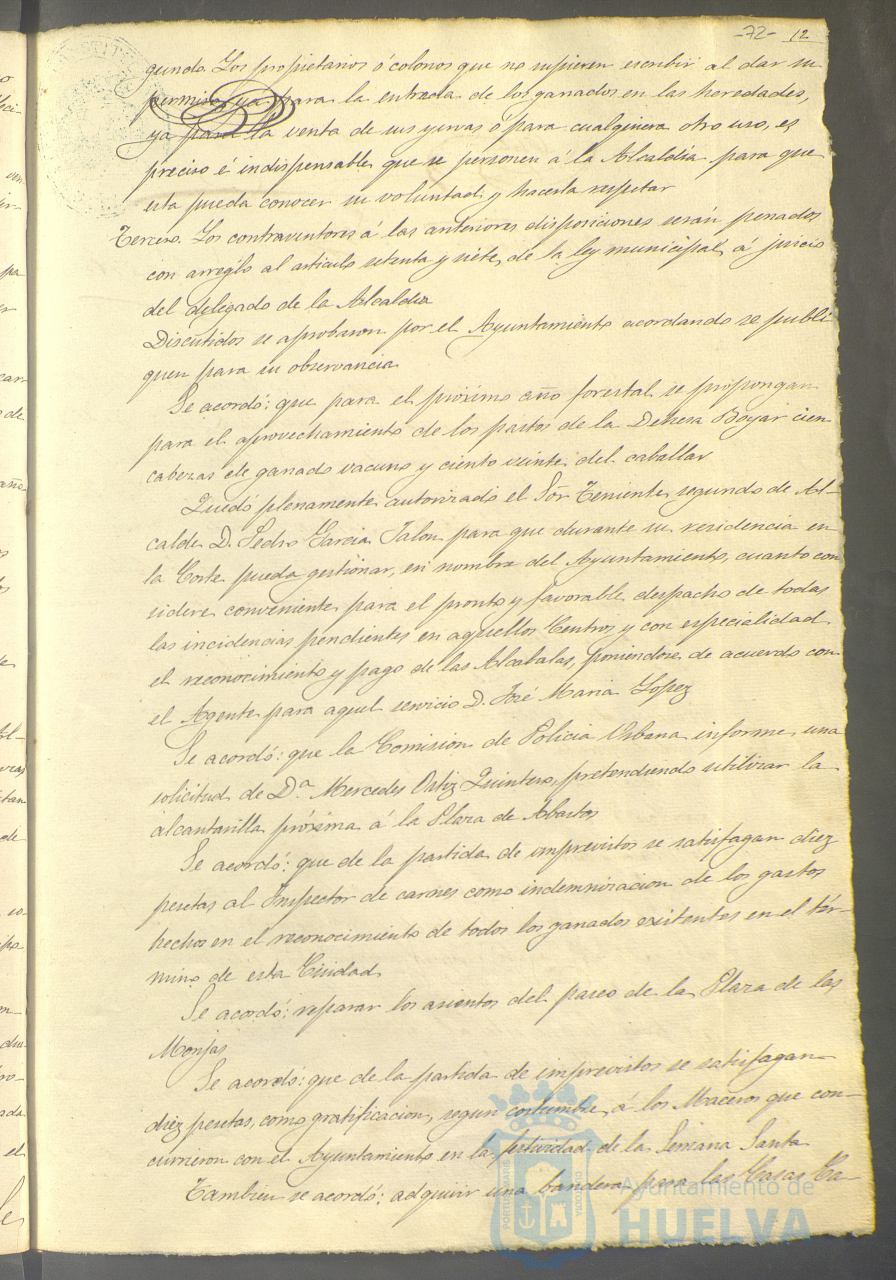 -72- 12
gundo. Los propietarios ó colonos que no supieren escribir al dar su
permiso, ya para la entrada de los ganados en las heredades,
ya para la venta de sus yervas ó para cualquiera otro uso, es
preciso é indispensable que se personen á la Alcaldia para que
esta pueda conocer su voluntad y hacerla respetar
Tercero. Los contraventores á las anteriores disposiciones serán penados
con arreglo al articulo setenta y siete de la ley municipal, á juicio
del delegado de la Alcaldia
Discutidos se aprobaron por el Ayuntamiento acordando se publi
quen para su observancia
Se acordó: que para el próximo año forestal se propongan
para el aprovechamiento de los pastos de la Dehesa Boyar cien
cabezas de ganado vacuno y ciento veinte del caballar
Quedó plenamente autorizado el Sor Teniente segundo de Al-
calde D. Pedro Garcia Jalon para que durante su residencia en
la Corte pueda gestionar, en nombre del Ayuntamiento, cuanto con
sidere conveniente para el pronto y favorable despacho de todas
las incidencias pendientes en aquellos Centros y con especialidad
el reconocimiento y pago de las Alcabalas, poniendose de acuerdo con
el Agente para aquel servicio D. José Maria Lopez
Se acordó: que la Comision de Policia Urbana informe una
solicitud de Da. Mercedes Ortiz Quintero, pretendiendo utilizar la
alcantarilla próxima á la Plaza de Abastos
Se acordó: que de la partida de imprevistos se satisfagan diez
pesetas al Inspector de carnes como indemnizacion de los gastos
hechos en el reconocimiento de todos los ganados existentes en el tér-
mino de esta Ciudad
Se acordó: reparar los asientos del paseo de la Plaza de las
Monjas
Se acordó: que de la partida de imprevistos se satisfagan
diez pesetas, como gratificacion, segun costumbre, á los Maceros que con-
currieron con el Ayuntamiento en la festividad de la Semana Santa
Tambien se acordó: adquirir una bandera para las Casas Ca-
Ayuntamiento de
HUELVA